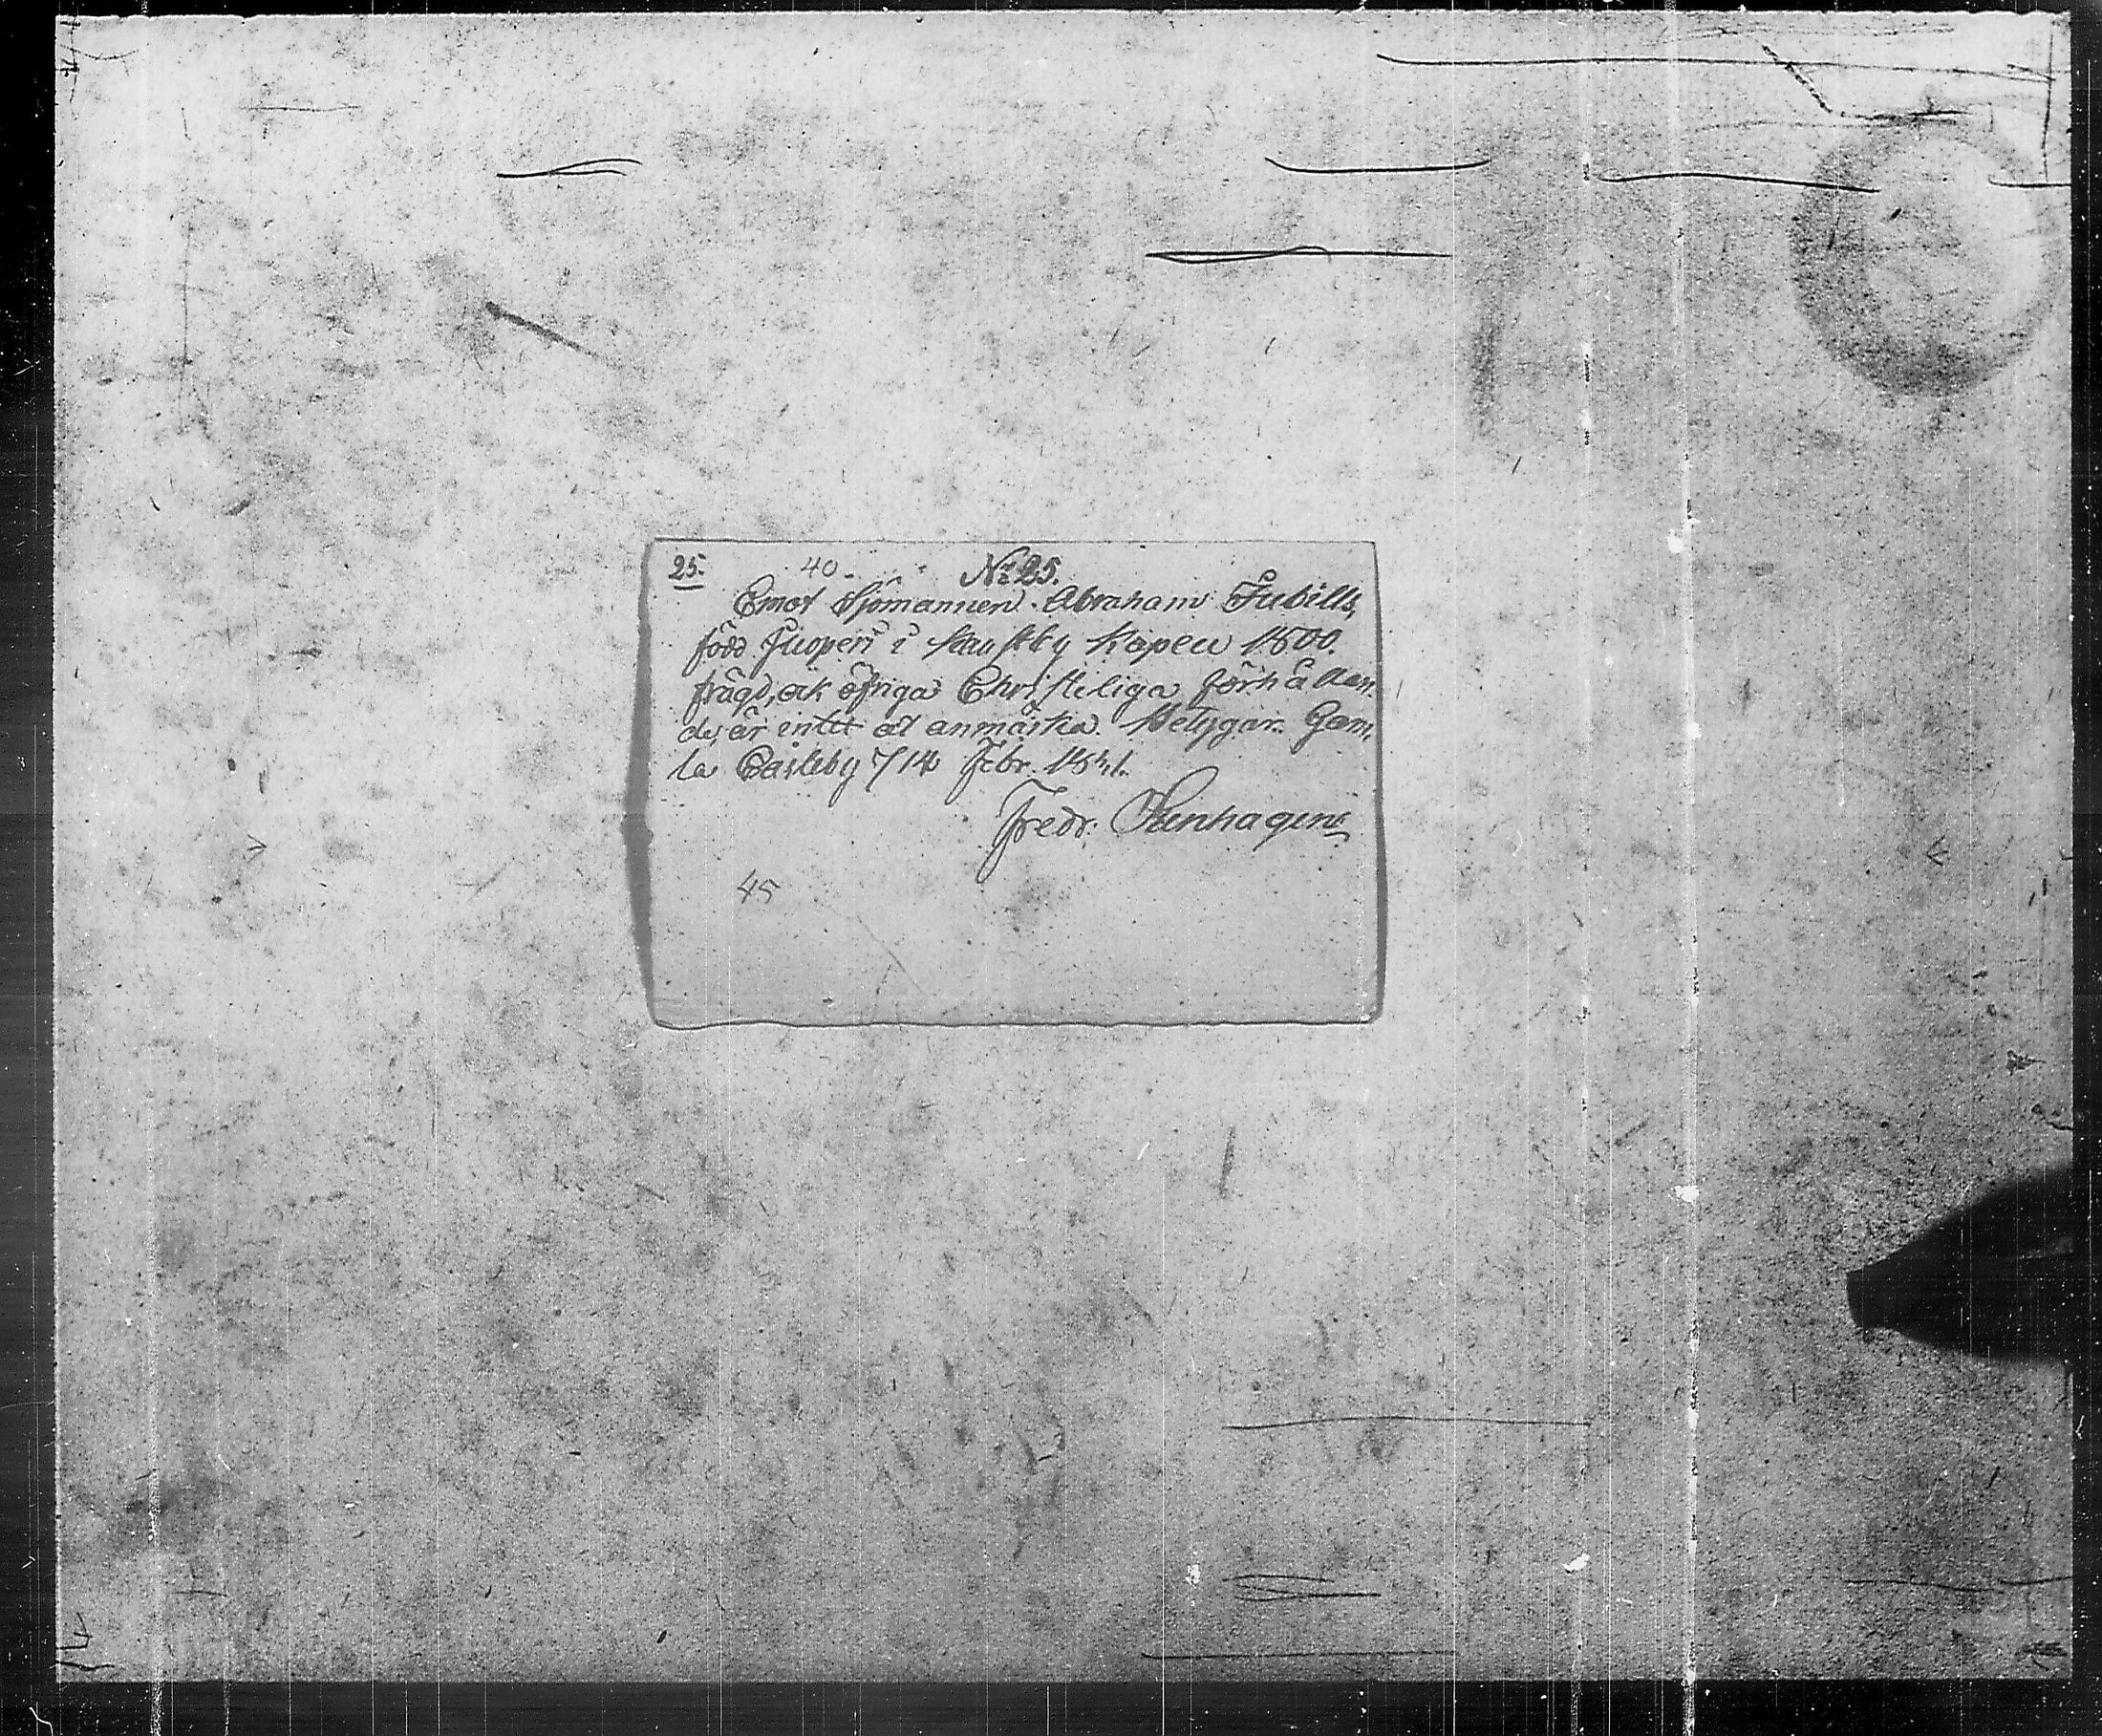 25. 40. No 25.
Emot Sjömannen Abraham
född i Kapell 1800.
frägd, ok öfriga Christeliga förhållan-
de, är intet at anmärka. Betygar. Gam,
la Carleby 7/14 Febr. 1841.
Fredr.
45